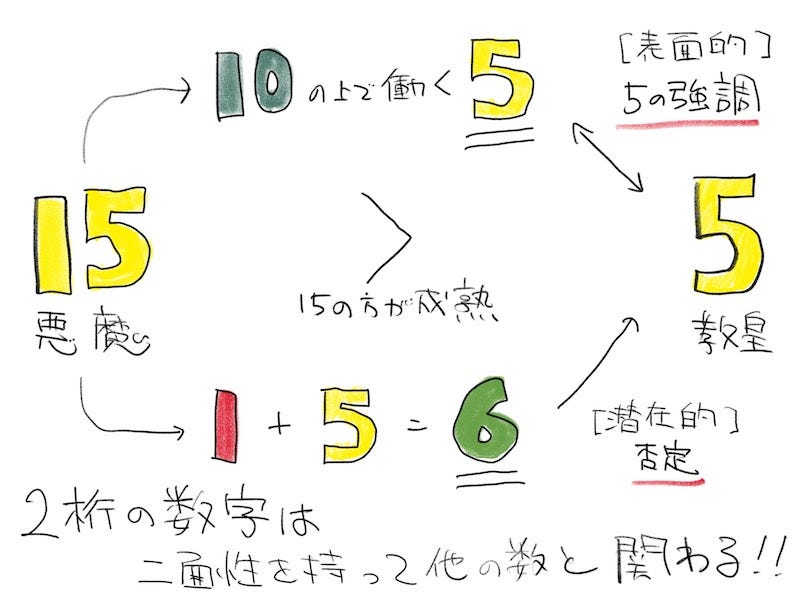 10の上で働く5
[表面的]
5の強調
15
悪魔
>
15の方が成熟
5
教皇
1 + 5 = 6
[潜在的]
否定
2桁の数字は
二面性を持って他の数と関わる!!